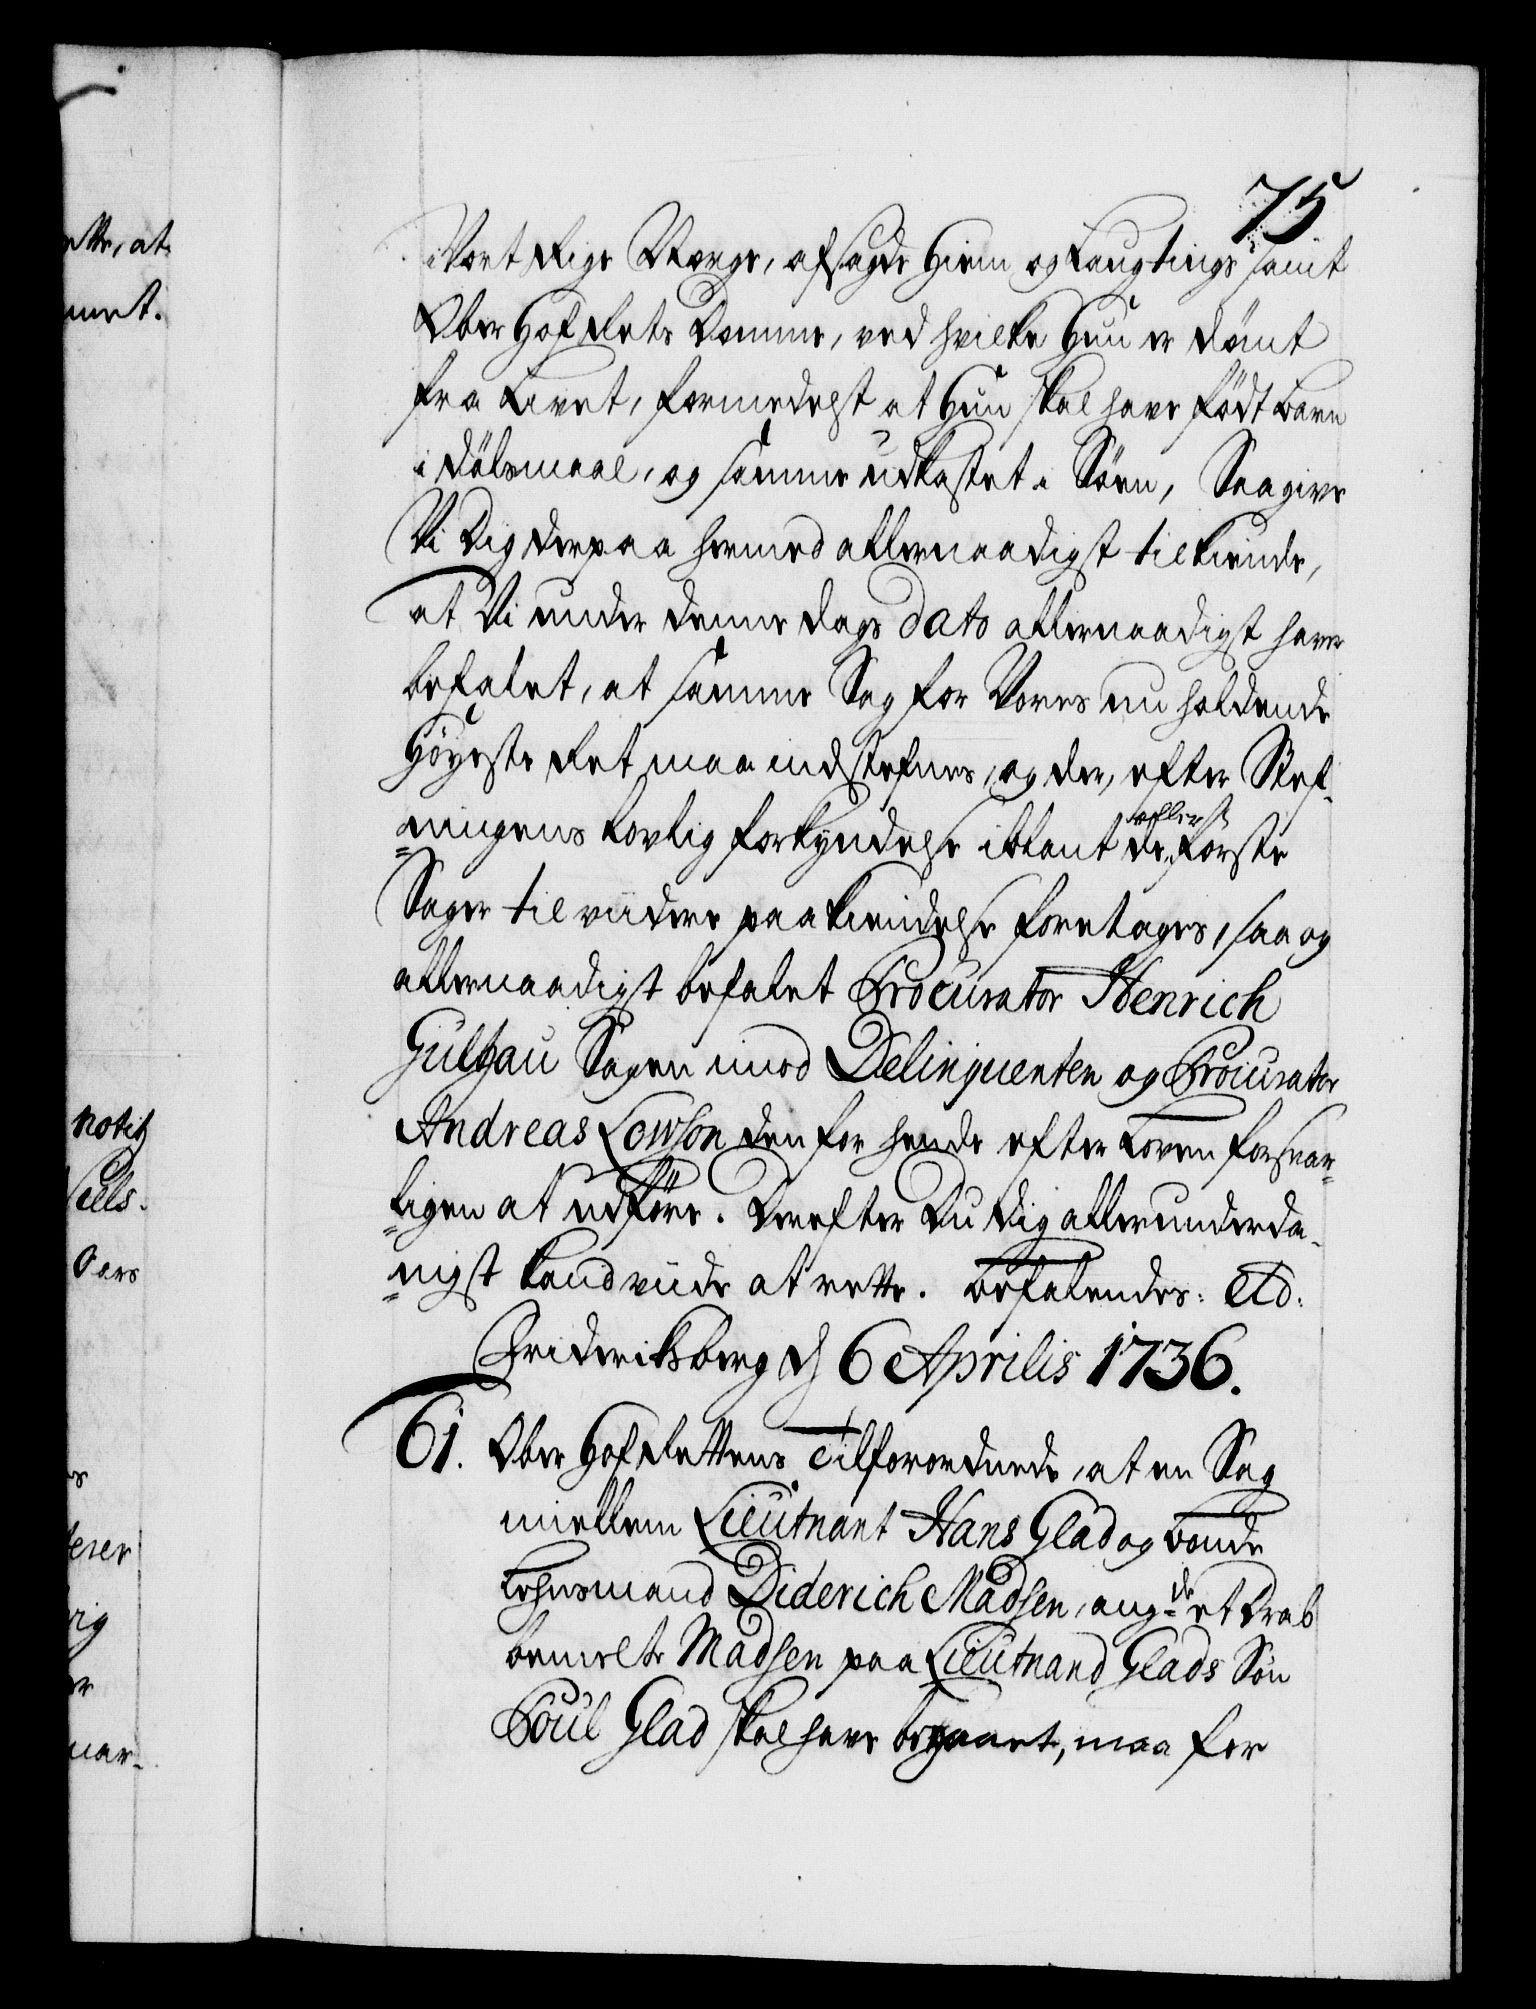 75
i Vort Rige Norge, afsagde Hiem og Laugtings samt
Ober Hof Rets Domme, ved hvilke Hun er dömt
fra Livet, formedelst at Hun skal have födt barn
i dölsmaal, og samme udkastet i Söen, Saa give
Vi Dig derpaa hermed allernaadigst tilkiende,
at Vi under denne dags dato allernaadigst haver
befalet, at samme Sag for Vores nu holdende
Höyeste Ret maa indstefnes, og der, efter Stef-
ningens lovlig forkyndelse iblant de allerförste
Sager til viidere paakiendelse foretages, saa og
allernaadigst befalet Procurator Henrich
Gultzau Sagen imod Delinquenten og Procurator
Andreas Lowson den for hende efter Loven forsvar-
ligen at udföre. Derefter Du dig allerunderda-
nigst kand viide at rette. Befalendes: etc:
Frideriksberg d 6 Aprilis 1736.
61. Ober Hof Rettens Tilforordnede, at en Sag
miellem Lieutnant Hans Glad og bonde
Lehnsmand Diderich Madsen, angde et Drab
bemelte Madsen paa Lieutnand Glads Sön
Poul Glad skal have begaaet, maa for
ette, at
met.
notitz
Niels.
Aars
terer
rig
er
var-